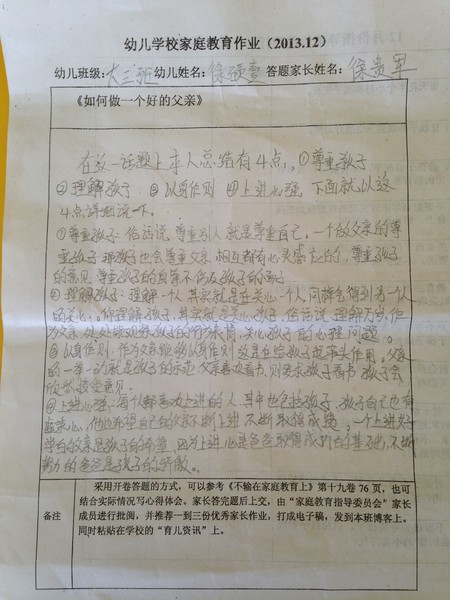 幼儿学校家庭教育作业（2013.12）
幼儿班级：大三班 幼儿姓名：徐 答题家长姓名：徐贵军
《如何做一个好的父亲》
在这一话题上本人总结有4点，①尊重孩子
②理解孩子 ③以身作则 ④上进心强 下面就以这
4点详细说一下。
①尊重孩子：俗话说，尊重别人就是尊重自己，一个做父亲的尊
重孩子 那孩子也会尊重父亲 相互都有心灵感应的，尊重孩子
的意见 尊重孩子的自尊 不伤及孩子的
②理解孩子：理解一人 其实就是在关心一个人 同样会得到另一人
的关心。你理解孩子，其实就是关心孩子，俗话说 理解万岁，作
为父亲 处处 孩子的行为表情，关心孩子的心理问题。
③以身作则，作为父亲 以身作则 这是在给孩子起带头作用，父亲
的一举一动就是孩子的示范 父亲喜欢看书，则要求孩子看书 孩子会
欣然接受意见。
④上进心强：每个人都喜欢上进的人 其中也包括孩子，孩子自己也有
心，他也希望自己的父亲不断上进 不断取得成绩，一个上进好
学的父亲是孩子的希望，因为上进心是爸爸取得成功的基础，不断
努力的爸爸是孩子的骄傲。
备注
采用开卷答题的方式，可以参考《不输在家庭教育上》第十九卷 76 页，也可
结合实际情况写心得体会。家长答完题后上交，由“家庭教育指导委员会”家长
成员进行批阅，并推荐一到三份优秀家长作业，打成电子稿，发到本班博客上。
同时粘贴在学校的“育儿资讯”上。